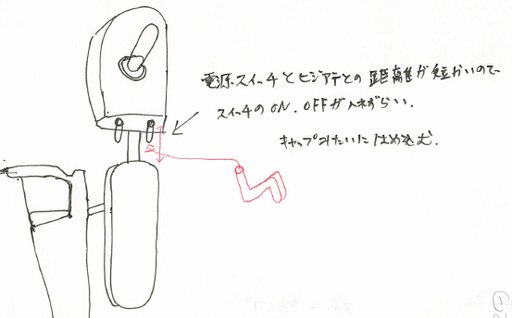 電源スイッチとヒジアテとの距離が短かいので
スイッチのON.OFFが入れずらい.
キャップみたいにはめ込む.
①